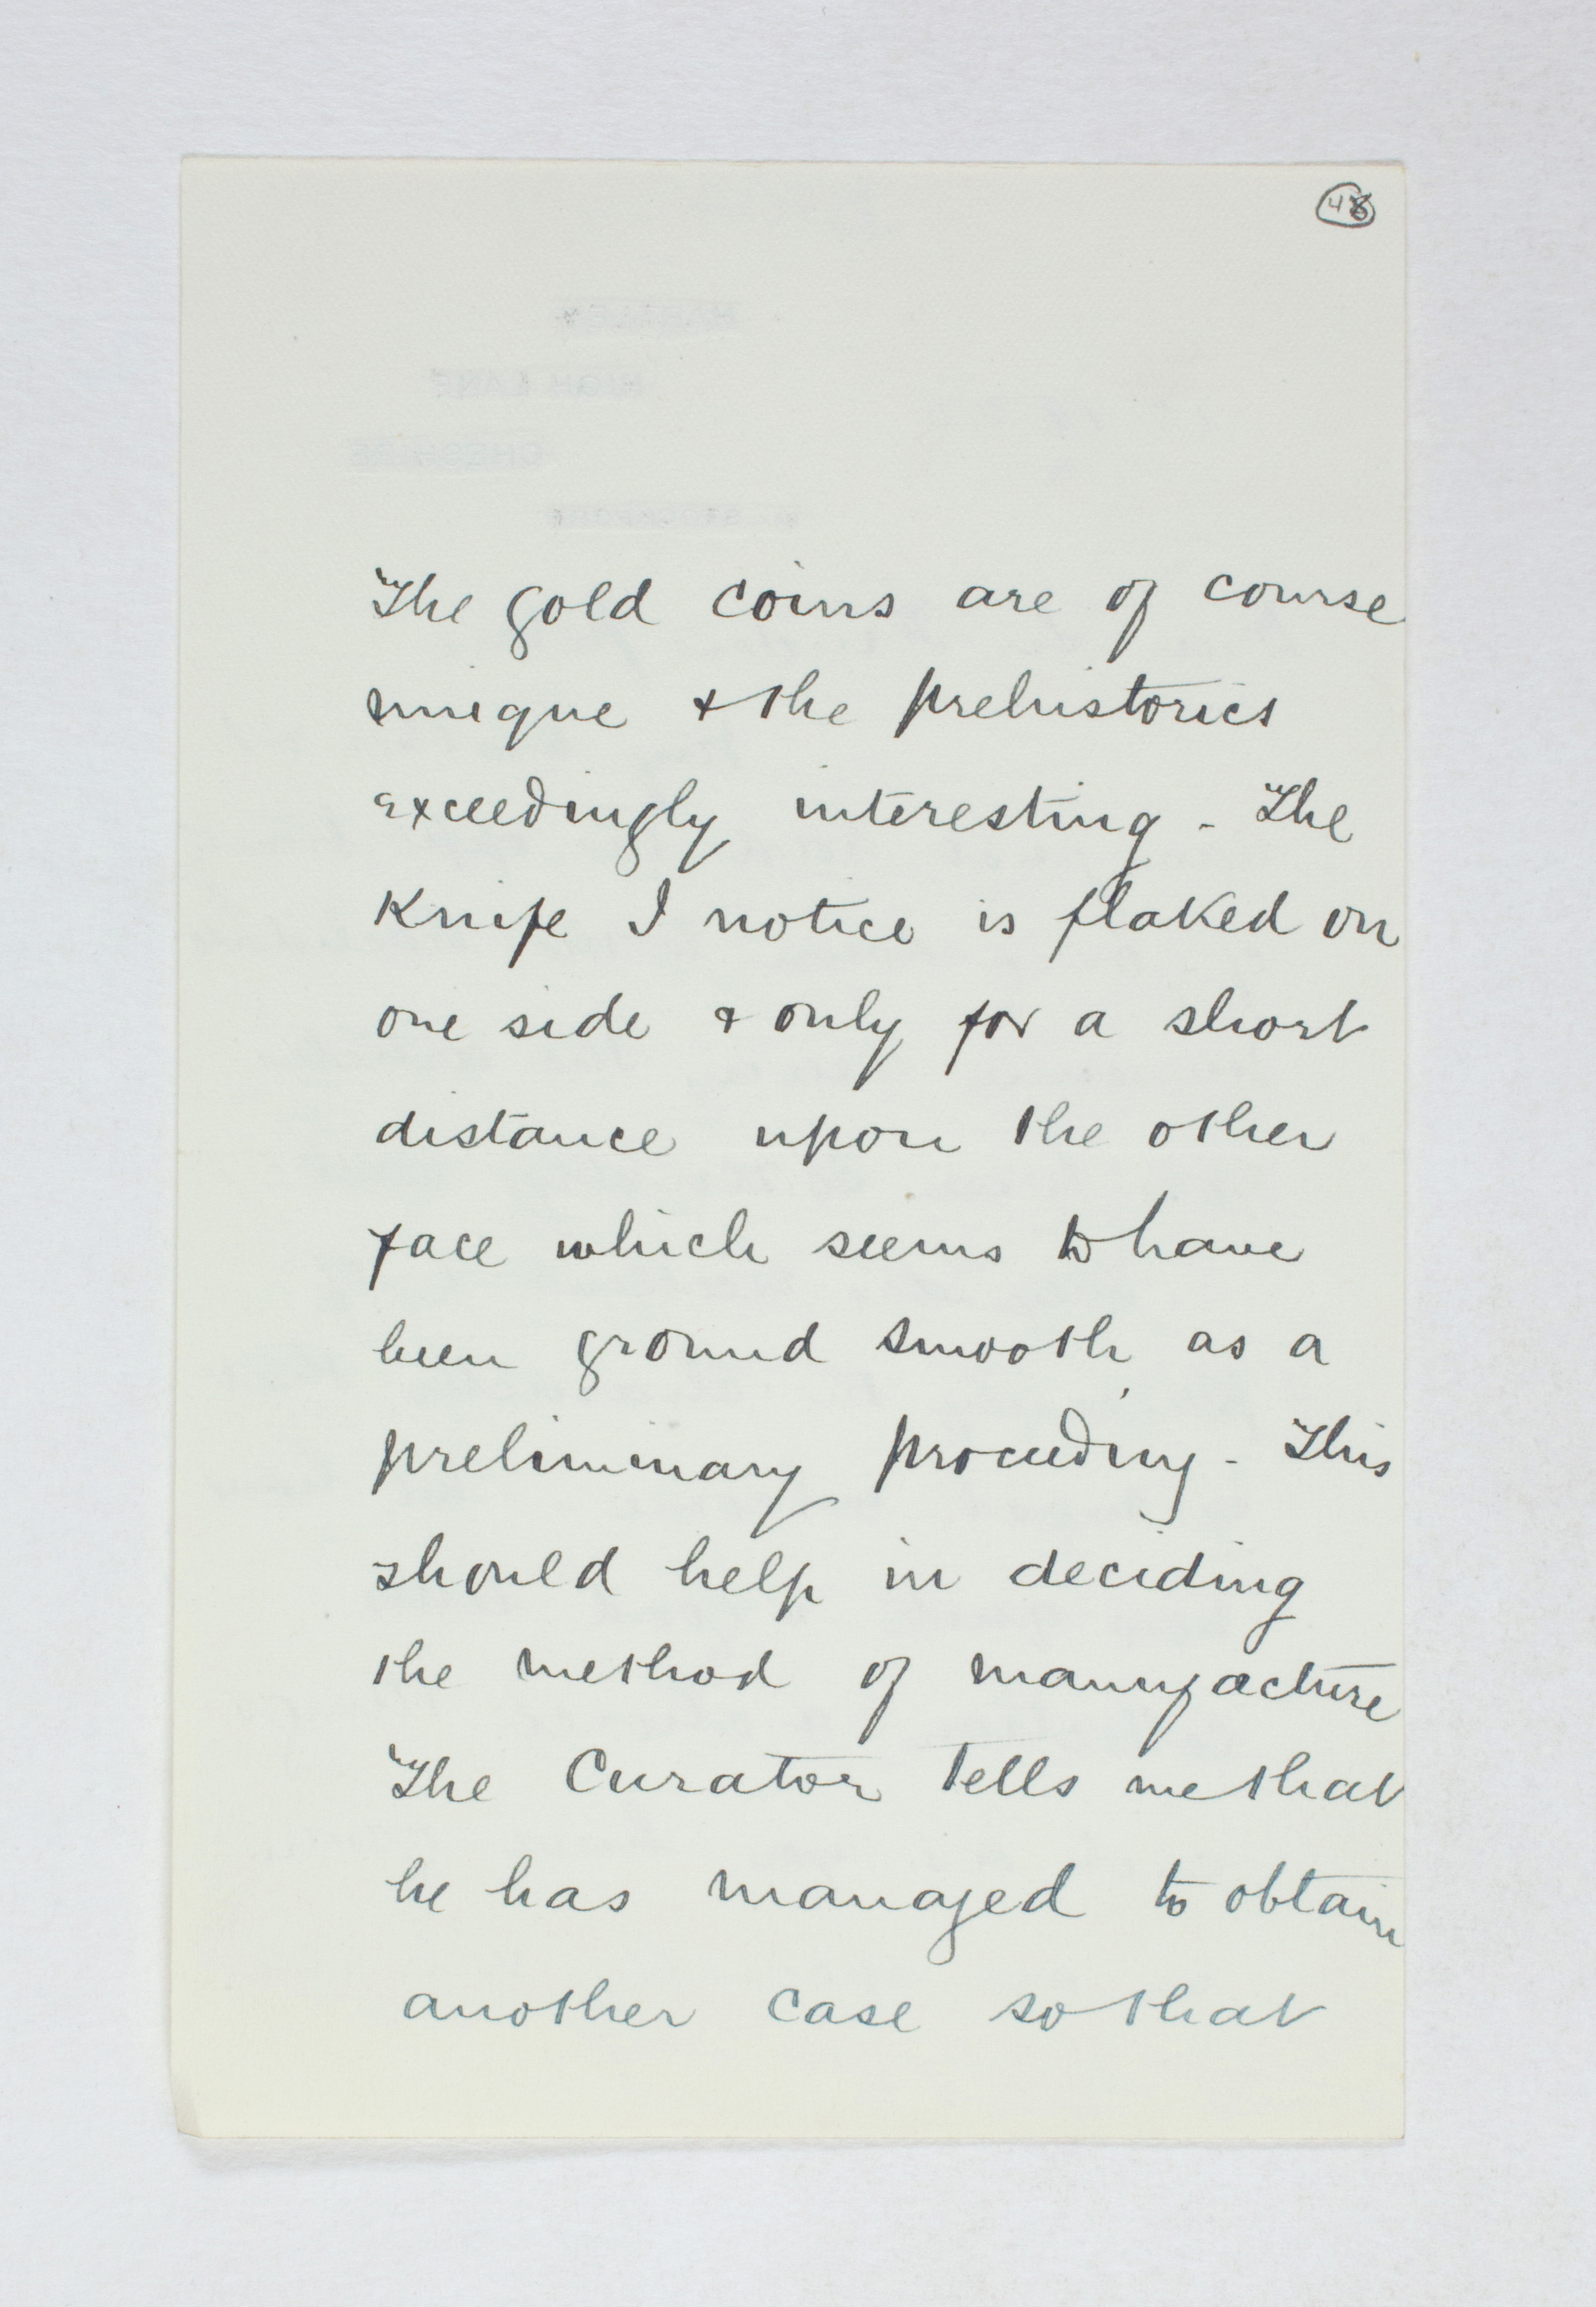 48
The gold coins are of course
unique & the prehistorics
exceedingly interesting - The
Knife I notice is flaked on
one side & only for a short
distance upon the other
face which seems to have
been ground smooth, as a
preliminary proceeding - This
should help in deciding
the method of manufacture
The Curator tells me that
he has managed to obtain
another case so that